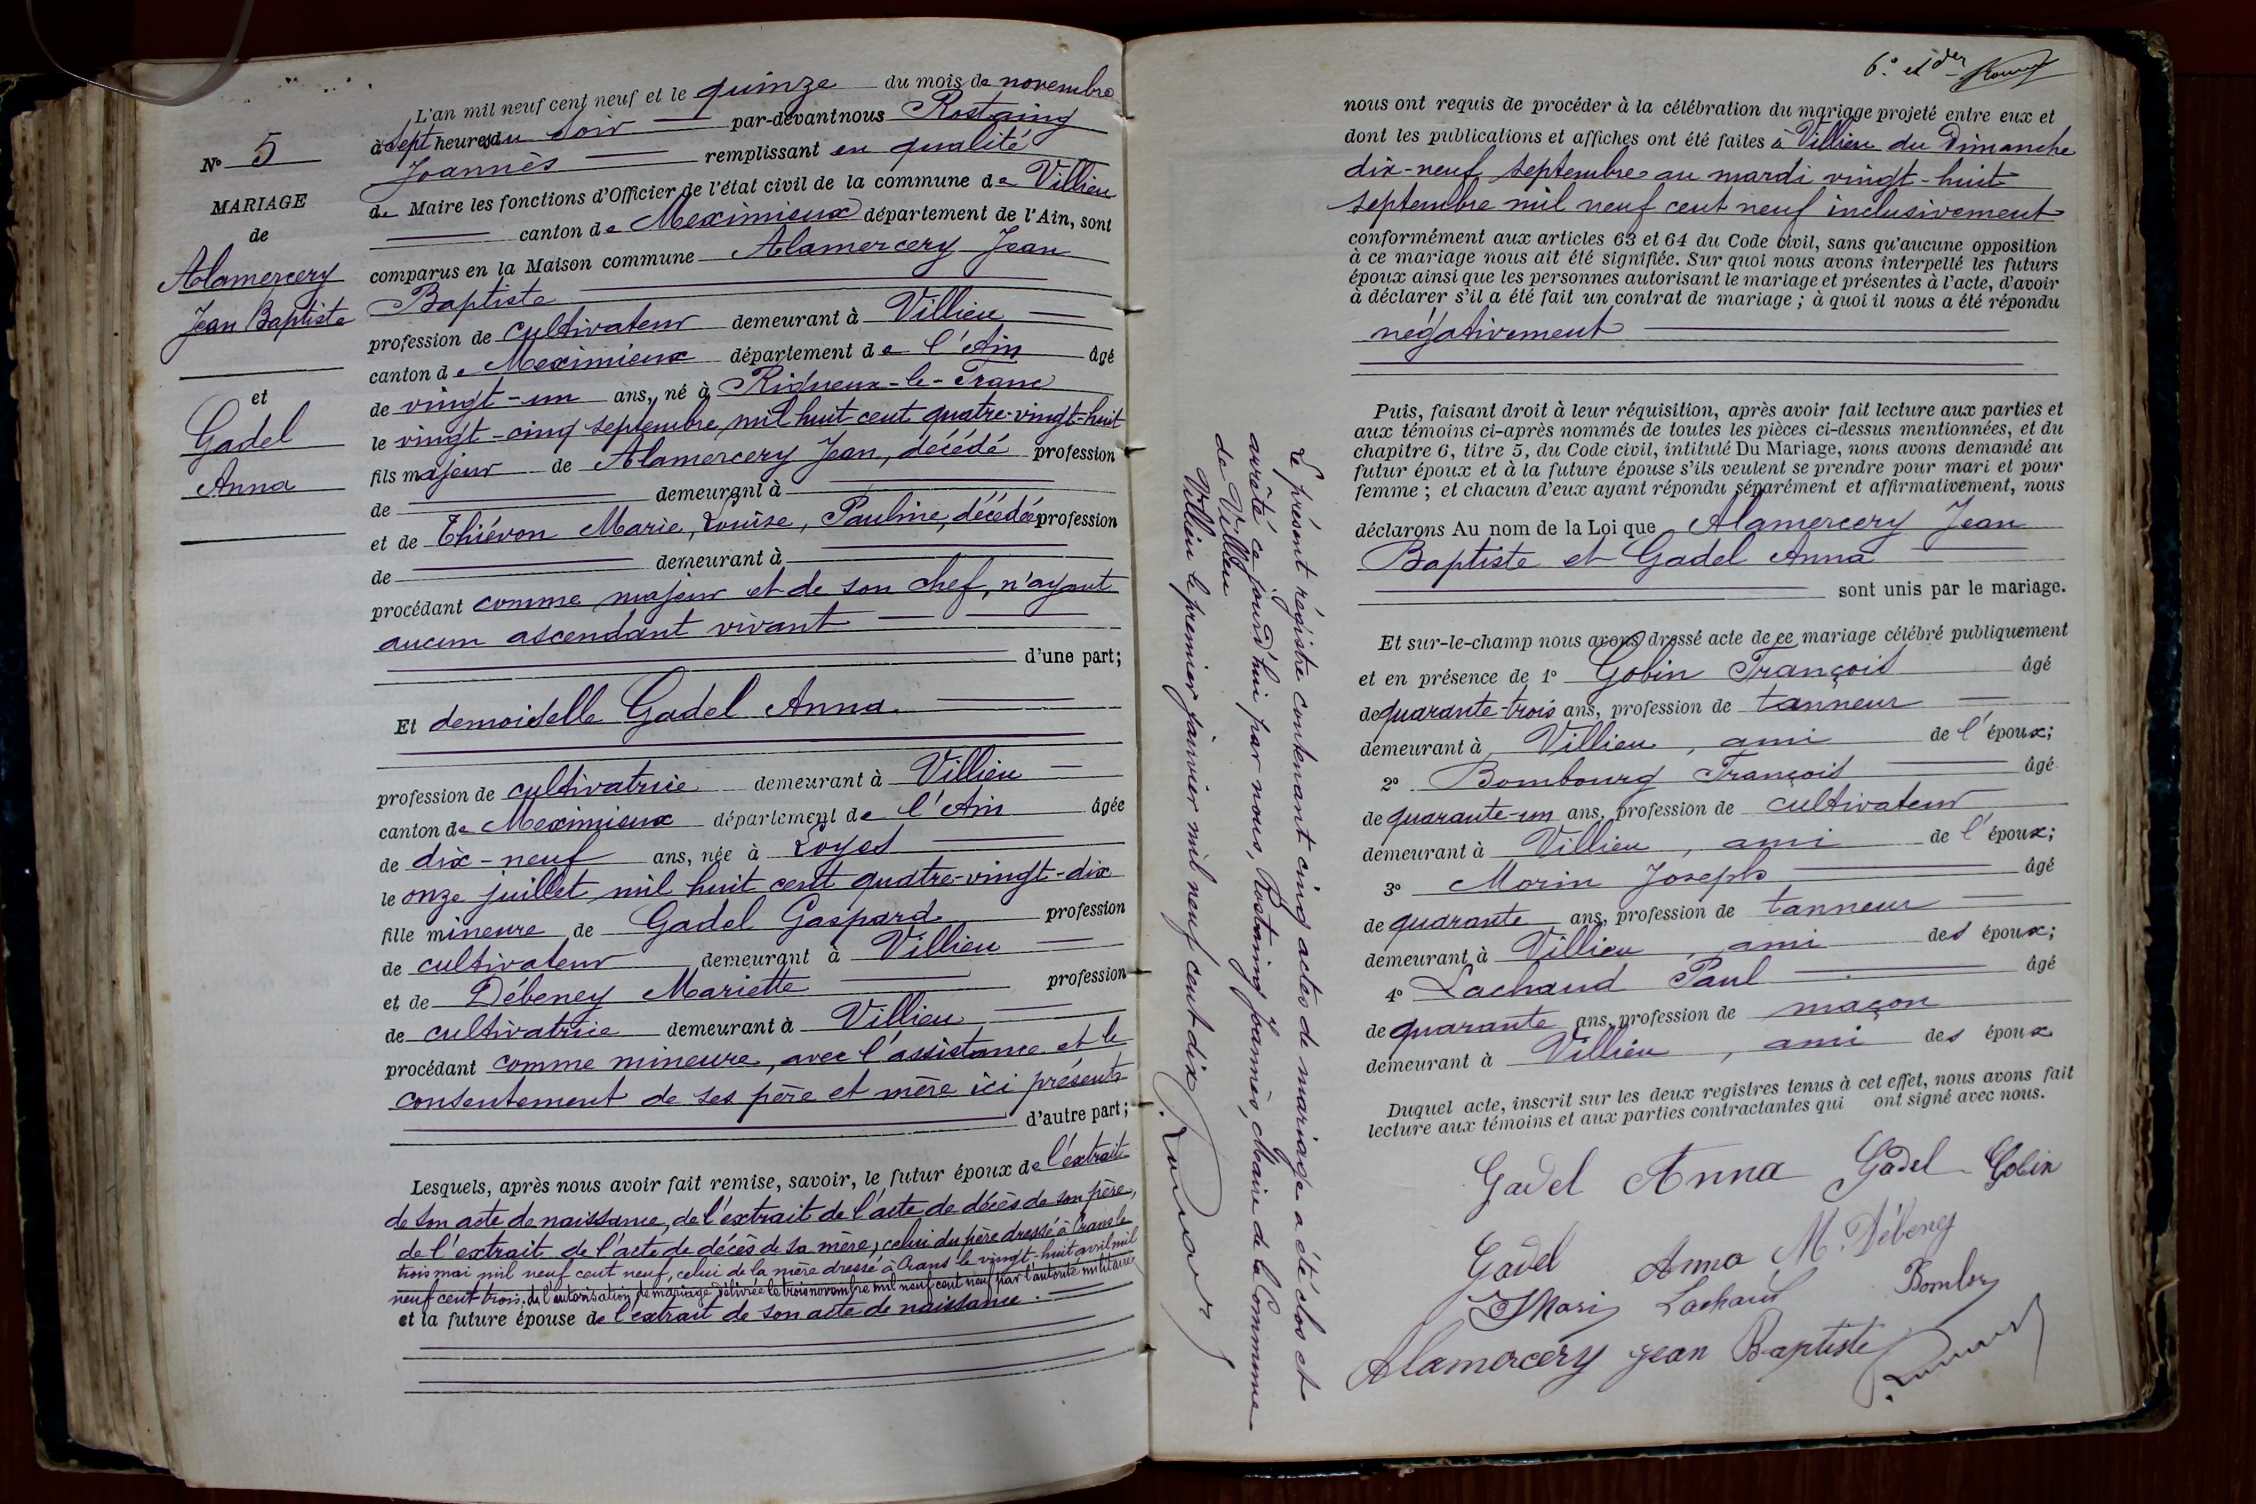 L'an mil neuf cent neuf et le quinze du mois de novembre
à sept heures du soir par-devant nous Rostaing
Joannès remplissant en qualité
de Maire les fonctions d'Officier de l'état civil de la commune de Villieu
canton de Meximieux département de l'Ain, sont
comparus en la Maison commune Alamercery Jean
Baptiste
profession de cultivateur demeurant à Villieu
canton de Meximieux département de l'Ain âgé
de vingt-un ans, né à Rigneux-le-Franc
le vingt-cinq septembre mil huit cent quatre-vingt-huit
fils majeur de Alamercery Jean, décédé profession
de demeurant à
et de Thiévon Marie, Louise, Pauline, décédée profession
de demeurant à
procédant comme majeur et de son chef, n'ayant
aucun ascendant vivant
d'une part;
Et demoiselle Gadel Anna
profession de cultivatrice demeurant à Villieu
canton de Meximieux département de l'Ain âgée
de dix-neuf ans, née à Loyes
le onze juillet mil huit cent quatre-vingt-dix
fille mineure de Gadel Gaspard profession
de cultivateur demeurant à Villieu
et de Débeney Mariette profession
de cultivatrice demeurant à Villieu
procédant comme mineure, avec l'assistance et le
consentement de ses père et mère ici présents
d'autre part;
Lesquels, après nous avoir fait remise, savoir, le futur époux de l'extrait
de son acte de naissance, de l'extrait de l'acte de décès de son père,
de l'extrait de l'acte de décès de sa mère, celui du père dressé à Crans le
trois mai mil neuf cent neuf, celui de la mère dressé à Crans le vingt-huit avril mil
neuf cent trois, de l'autorisation de mariage délivrée le trois novembre mil neuf cent neuf par l'autorité militaire
et la future épouse de l'extrait de son acte de naissance.
N° 5
MARIAGE
de
Alamercery
Jean Baptiste
et
Gadel
Anna
Le présent registre contenant cinq actes de mariage a été clos et
arrêté ce jourd'hui par nous, Rostaing Joannès, Maire de la Commune
de Villieu
Villieu le premier janvier mil neuf cent dix
6e et der
nous ont requis de procéder à la célébration du mariage projeté entre eux et
dont les publications et affiches ont été faites à Villieu du Dimanche
dix-neuf septembre au mardi vingt-huit
septembre mil neuf cent neuf inclusivement
conformément aux articles 63 et 64 du Code civil, sans qu'aucune opposition
à ce mariage nous ait été signifiée. Sur quoi nous avons interpellé les futurs
époux ainsi que les personnes autorisant le mariage et présentes à l'acte, d'avoir
à déclarer s'il a été fait un contrat de mariage ; à quoi il nous a été répondu
négativement
Puis, faisant droit à leur réquisition, après avoir fait lecture aux parties et
aux témoins ci-après nommés de toutes les pièces ci-dessus mentionnées, et du
chapitre 6, titre 5, du Code civil, intitulé Du Mariage, nous avons demandé au
futur époux et à la future épouse s'ils veulent se prendre pour mari et pour
femme ; et chacun d'eux ayant répondu séparément et affirmativement, nous
déclarons Au nom de la Loi que Alamercery Jean
Baptiste et Gadel Anna
sont unis par le mariage.
Et sur-le-champ nous avons dressé acte de ce mariage célébré publiquement
et en présence de 1° Gobin François âgé
de quarante-trois ans, profession de tanneur
demeurant à Villieu, ami de l'époux;
2° Bombourg François âgé
de quarante-un ans, profession de cultivateur
demeurant à Villieu, ami de l'époux;
3° Morin Joseph âgé
de quarante ans, profession de tanneur
demeurant à Villieu ami des époux;
4° Lachaud Paul âgé
de quarante ans, profession de maçon
demeurant à Villieu, ami des époux
Duquel acte, inscrit sur les deux registres tenus à cet effet, nous avons fait
lecture aux témoins et aux parties contractantes qui ont signé avec nous.
Gadel Anna Gadel Gobin
Gadel Anna M. Débeney
Lachaud
Alamercery Jean Baptiste